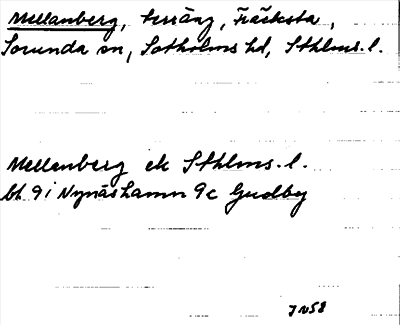 Mellanberg, terräng, Fräcksta,
Sorunda sn, Sotholms hd, Sthlms. l.
Mellanberg ek Sthlms. l.
bl 9 i Nynäshamn 9c Gudby
J N58